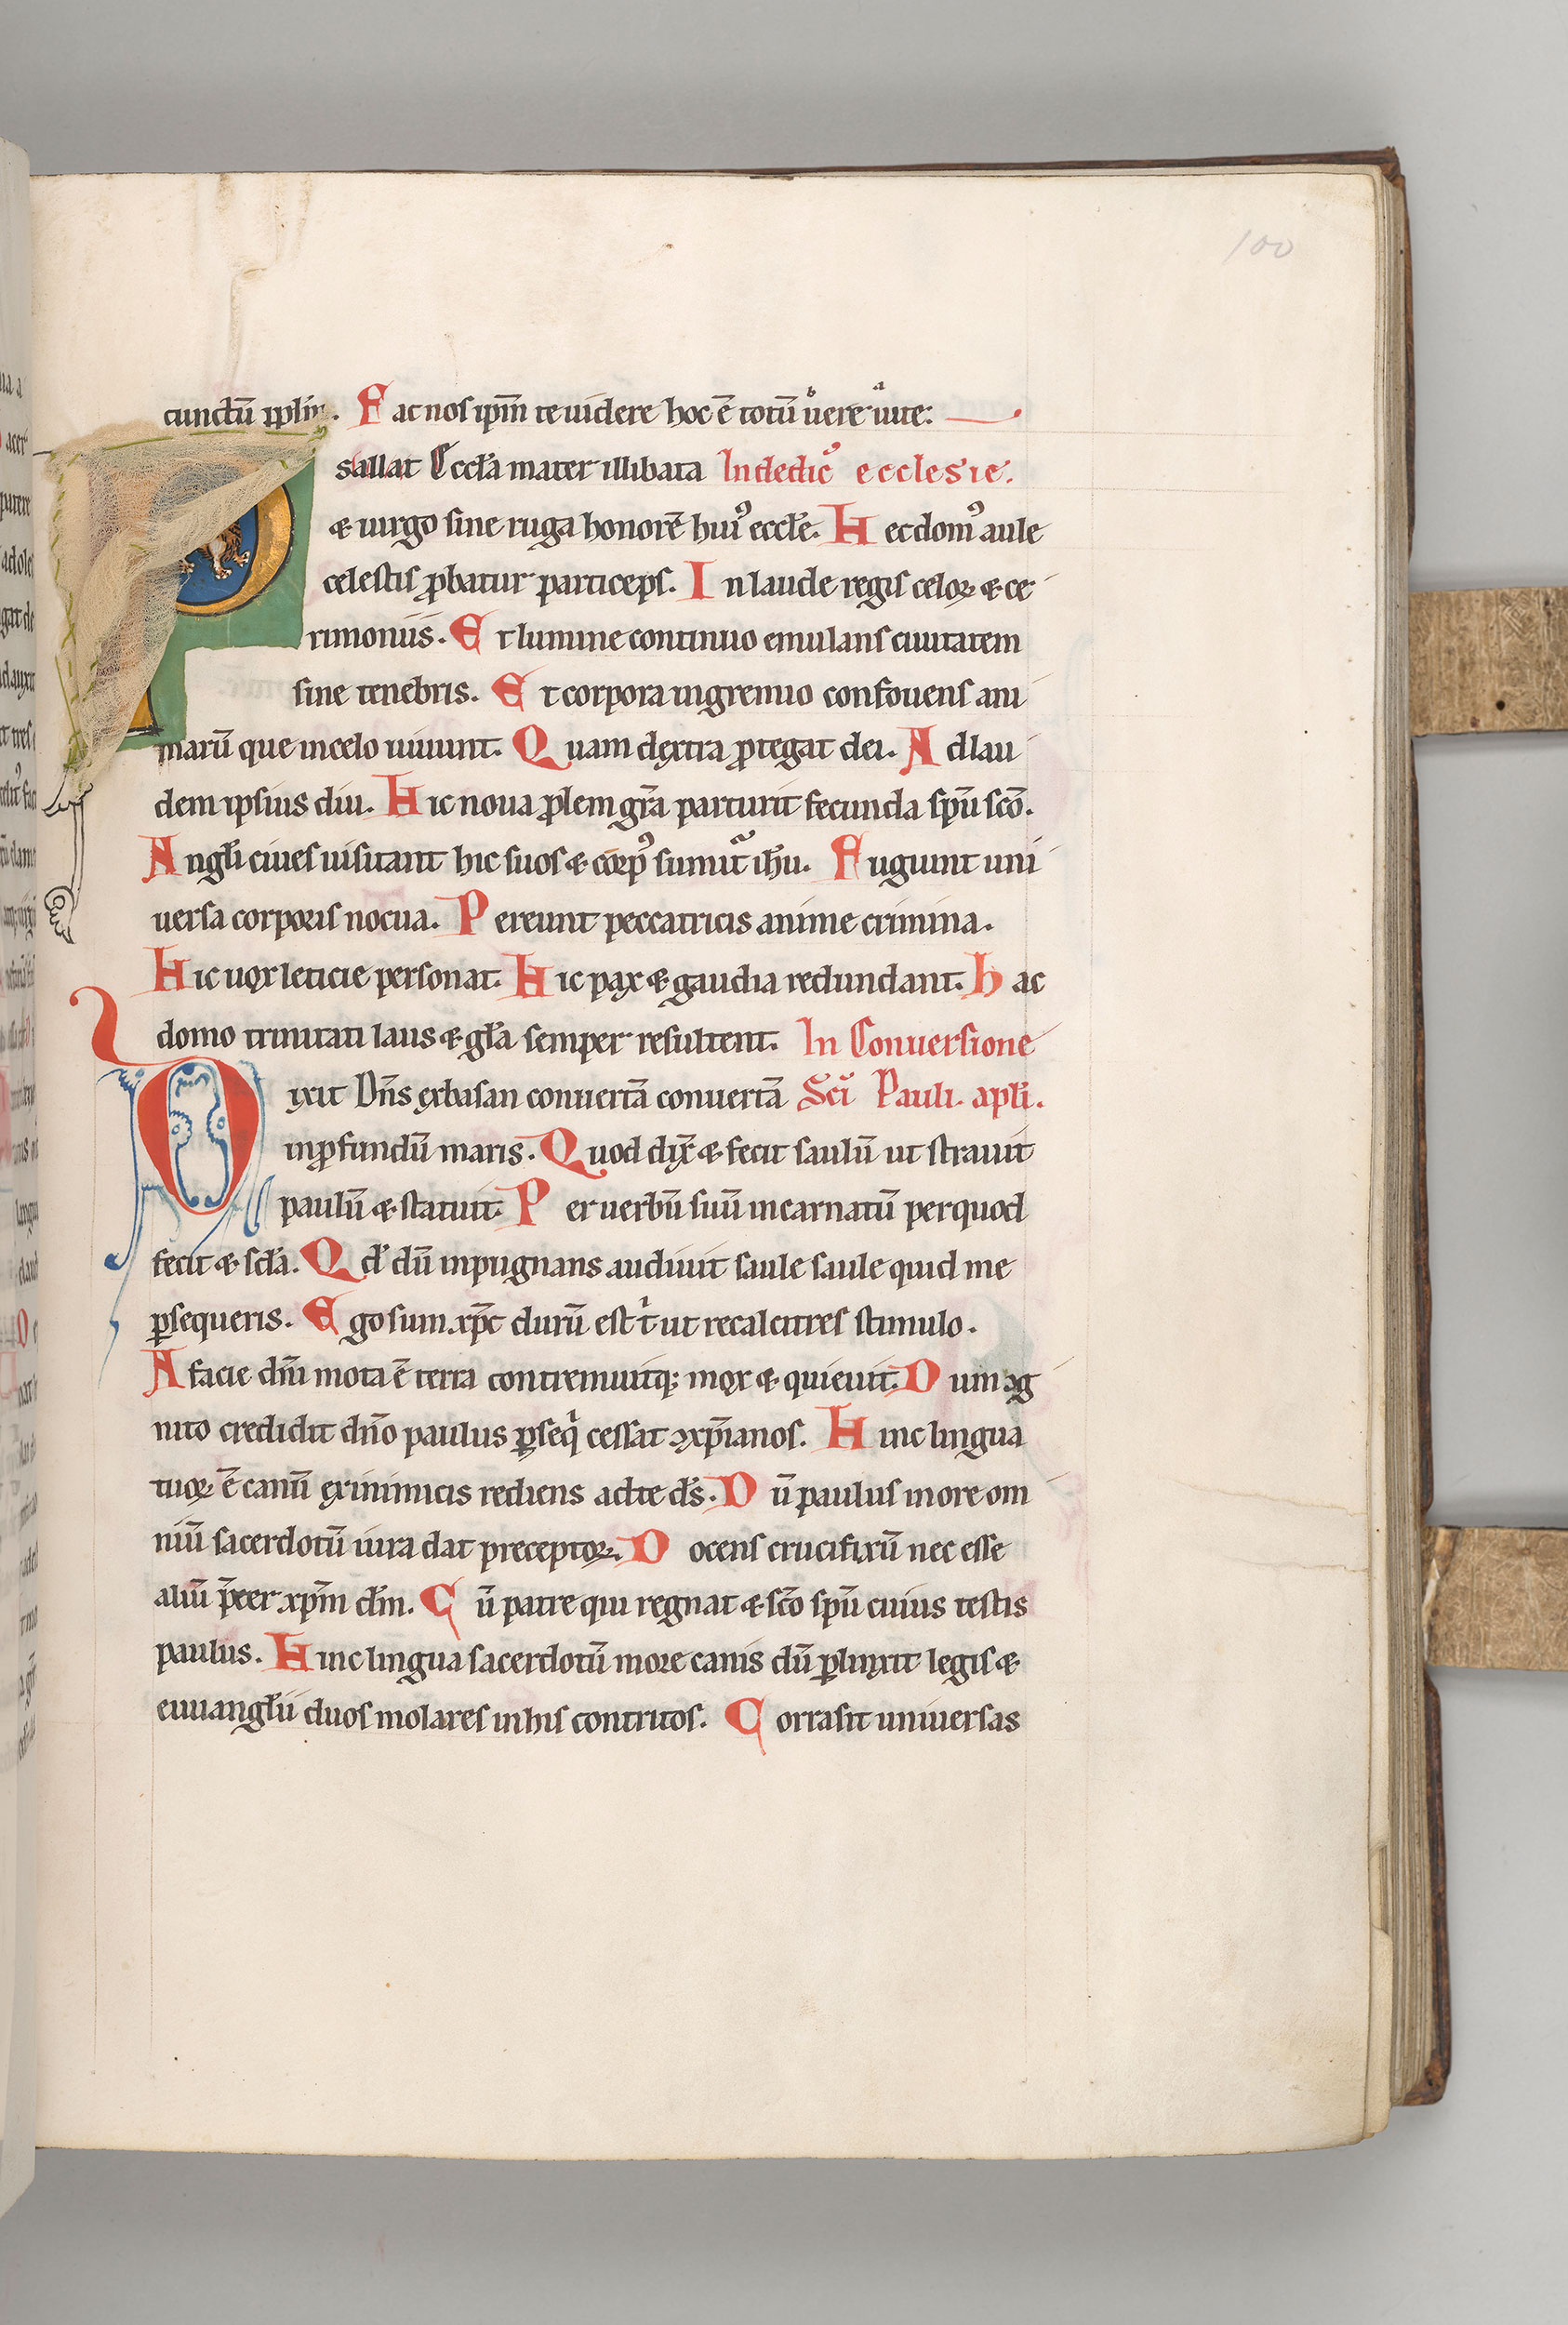 100
cunctū ꝓplm̄. Fac nos ip̄m te uidere hoc ē totū uere uite:
sallat Eccl̄a mater illibata In dedic̄ ecclesie.
& uirgo sine ruga honorē huiꝰ eccl̄e. Hec domꝰ aule
celestis ꝓbatur particeps. In laude regis celoꝝ & ce
rimoniis. Et lumine continuo emulans ciuitatem
sine tenebris. Et corpora in gremio confouens ani
marū que in celo uiuunt. Quam dextra ꝓtegat dei. Ad lau
dem ipsius diu. Hic noua ꝓlem gr̄a parturit fecunda sp̄u sc̄o.
Angl̄i ciues uisitant hic suos & corpꝰ sumit᷑ ih̄u. Fugiunt uni
uersa corporis nocua. Pereunt peccatricis anime crimina.
Hic uox leticie personat. Hic pax & gaudia redundant. Hac
domo trinitati laus & gl̄a semper resultent. In Conuersione
ixit Dn̄s ex basan conuertā conuertā Sc̄i Pauli. apl̄i.
in ꝓfundū maris. Quod dix̄ & fecit saulū ut strauit
paulū & statuit. Per uerbū suū incarnatū per quod
fecit & sc̄la. Qd̄ dū inpugnans audiuit saule saule quid me
ꝑsequeris. Ego sum xp̄c durū est t̄ ut recalcitres stimulo.
A facie dn̄i mota ē terra contremuitq; mox & quieuit. Dum ꝯg
nito credidit dn̄o paulus ꝑseq̄ cessat xp̄ianos. Hinc lingua
tuoꝝ ē canū ex inimicis rediens ad te ds̄. Dū paulus more om
niū sacerdotū iura dat preceptoꝝ. Docens crucifixū nec esse
aliū p̄ter xp̄m dm̄. Cū patre qui regnat & sc̄o sp̄u cuius testis
paulus. Hinc lingua sacerdotū more canis dū ꝑlinxit legis &
euuangl̄ii duos molares in his contritos. Corrasit uniuersas